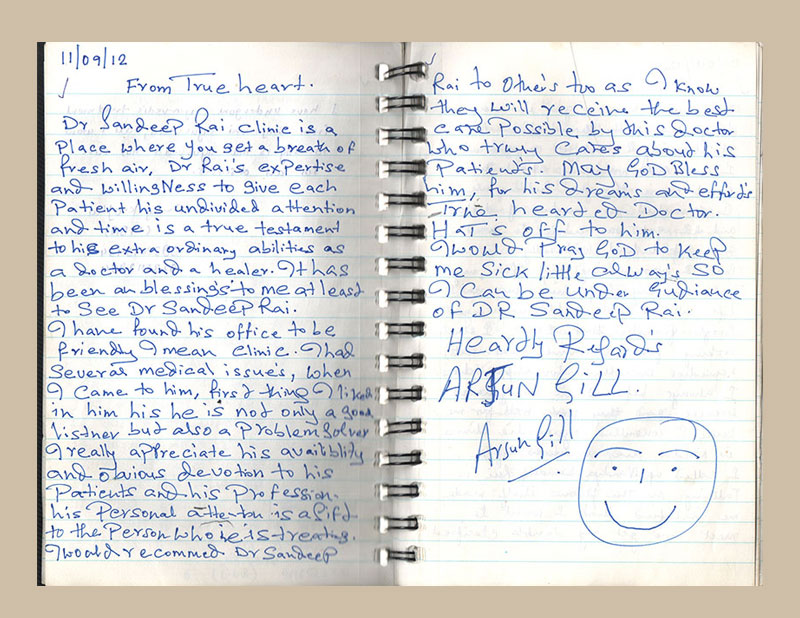 11/09/12
From True heart.
Dr Sandeep Rai clinic is a
Place where you get a breath of
fresh air, Dr Rai's expertise
and willingNess to give each
Patient his undivided attention
and time is a true testament
to his extra ordinary abilities as
a doctor and a healer. It has
been an blessing's to me at least
to See Dr Sandeep Rai.
I have found his office to be
friendly I mean clinic. I had
Several medical issue's, when
I came to him, first thing I liked
in him his he is not only a good
listner but also a Problem Solver
I really appreciate his avaiblity
and obvious devotion to his
Patients and his Profession.
his Personal attenton is a Gift
to the Person who he is treating.
I would recommed Dr Sandeep
Rai to Other's too as I know
they will receive the best
care Possible, by this doctor
who truly cares about his
Patients. May GOD Bless
him, for his dream's and efford's
True hearted Doctor.
Hat's off to him.
I would Pray GOD to keep
me Sick little always so
I Can be under Gudiance
of DR Sandeep Rai.
Heardly Regard's
ARJUN GILL.
Arjun Gill